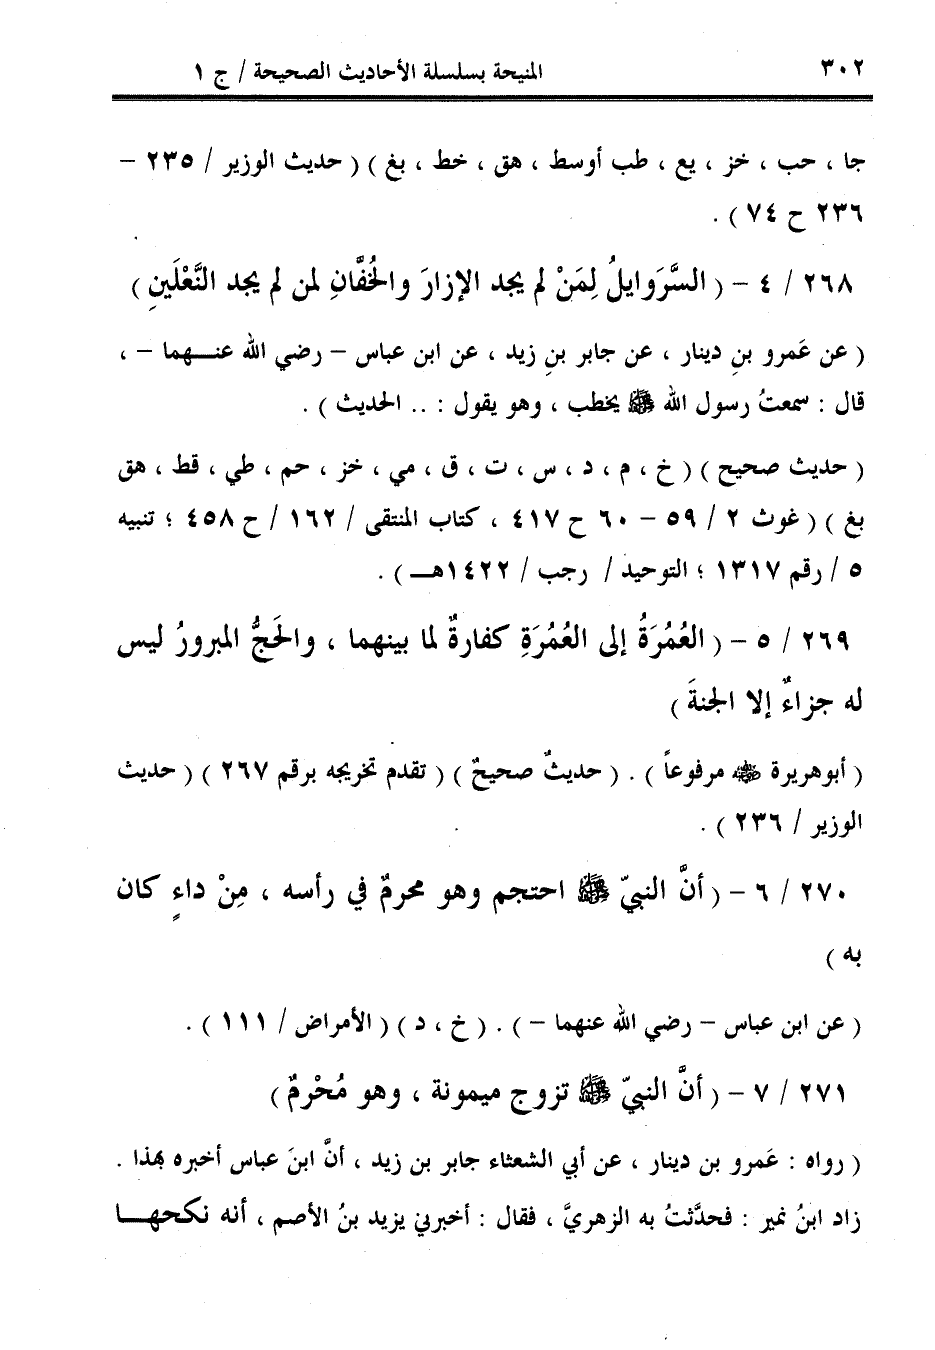 ٣٠٢ المنيحة بسلسلة الأحاديث الصحيحة / ج ١
جا ، حب ، خز ، يع ، طب أوسط ، هق ، خط ، بغ ) ( حديث الوزير / ٢٣٥ –
٢٣٦ ح ٧٤ ) .
٢٦٨ / ٤ – ( السَّرَوايلُ لِمَنْ لم يجد الإزارَ والخُفَّانِ لمن لم يجد النَّعْلَينِ )
( عن عَمرو بنِ دينار ، عن جابر بنِ زيد ، عن ابن عباس – رضي الله عنـهما – ،
قال : سمعتُ رسول الله ﷺ يخطب ، وهو يقول : .. الحديث ) .
( حديث صحيح ) ( خ ، م ، د ، س ، ت ، ق ، مي ، خز ، حم ، طي ، قط ، هق
بغ ) ( غوث ٢ / ٥٩ – ٦٠ ح ٤١٧ ، كتاب المنتقى / ١٦٢ / ح ٤٥٨ ؛ تنبيه
٥ / رقم ١٣١٧ ؛ التوحيد / رجب / ١٤٢٢هـ ) .
٢٦٩ / ٥ – ( العُمُرَةُ إلى العُمُرَةِ كفارةٌ لما بينهما ، والحَجُّ المبرورُ ليس
له جزاءٌ إلا الجنةَ )
( أبوهريرة ﵁ مرفوعاً ) . ( حديثٌ صحيحٌ ) ( تقدم تخريجه برقم ٢٦٧ ) ( حديث
الوزير / ٢٣٦ ) .
٢٧٠ / ٦ – ( أنَّ النبيّ ﷺ احتجم وهو محرمٌ في رأسه ، مِنْ داءٍ كان
به )
( عن ابن عباس – رضي الله عنهما – ) . ( خ ، د ) ( الأمراض / ١١١ ) .
٢٧١ / ٧ – ( أنَّ النبيّ ﷺ تزوج ميمونة ، وهو مُحْرمٌ )
( رواه : عَمرو بن دينار ، عن أبي الشعثاء جابر بن زيد ، أنَّ ابنَ عباس أخبره بهذا .
زاد ابنُ نمير : فحدَّثتُ به الزهريَّ ، فقال : أخبرني يزيد بنُ الأصم ، أنه نكحهـا